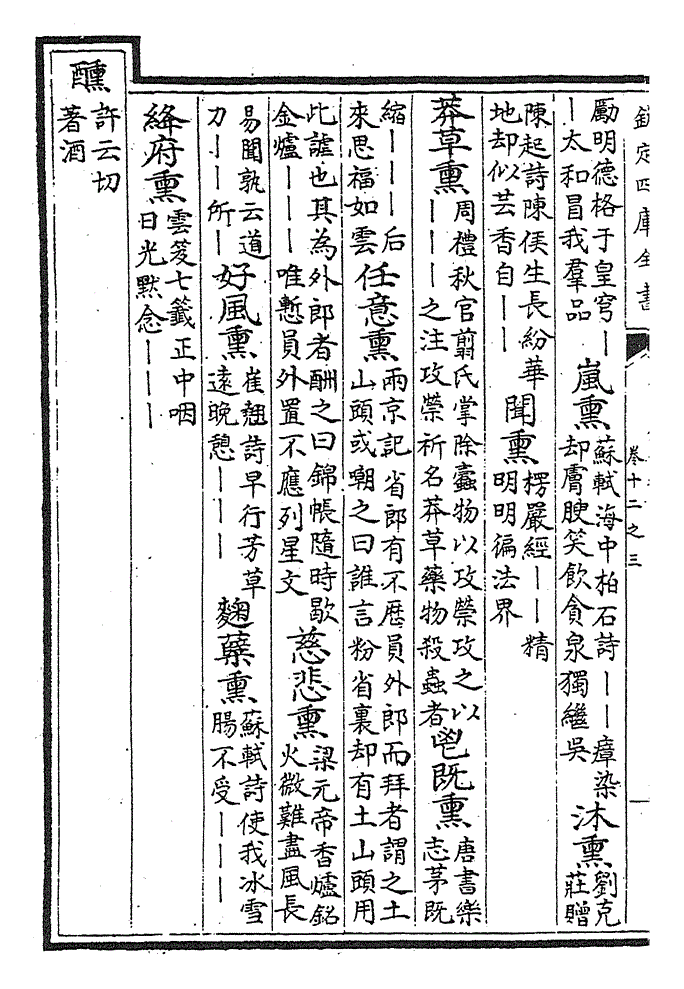 欽定四庫全書
卷十二之三
勵明德格于皇穹｜
｜太和昌我羣品
嵐熏
蘇軾海中柏石詩｜｜瘴染
却膚腴笑飲貪泉獨繼吳
沐熏
劉克
莊贈
陳起詩陳侯生長紛華
地却似芸香自｜｜
聞熏
楞嚴經｜｜精
明明徧法界
莽草熏
周禮秋官翦氏掌除蠹物以攻禜攻之以
｜｜｜之注攻禜祈名莽草藥物殺蟲者
鬯既熏
唐書樂
志茅既
縮｜｜｜后
來思福如雲
任意熏
兩京記省郎有不歷員外郎而拜者謂之土
山頭或嘲之曰誰言粉省裏却有土山頭用
此謔也其為外郎者酬之曰錦帳隨時歇
金爐｜｜｜唯慙員外置不應列星文
慈悲熏
梁元帝香爐銘
火微難盡風長
易聞孰云道
力｜｜｜所｜
好風熏
崔翹詩早行芳草
遠晚憩｜｜｜
麴糵熏
蘇軾詩使我冰雪
腸不受｜｜｜
絳府熏
雲笈七籤正中咽
日光黙念｜｜｜
醺
許云切
著酒